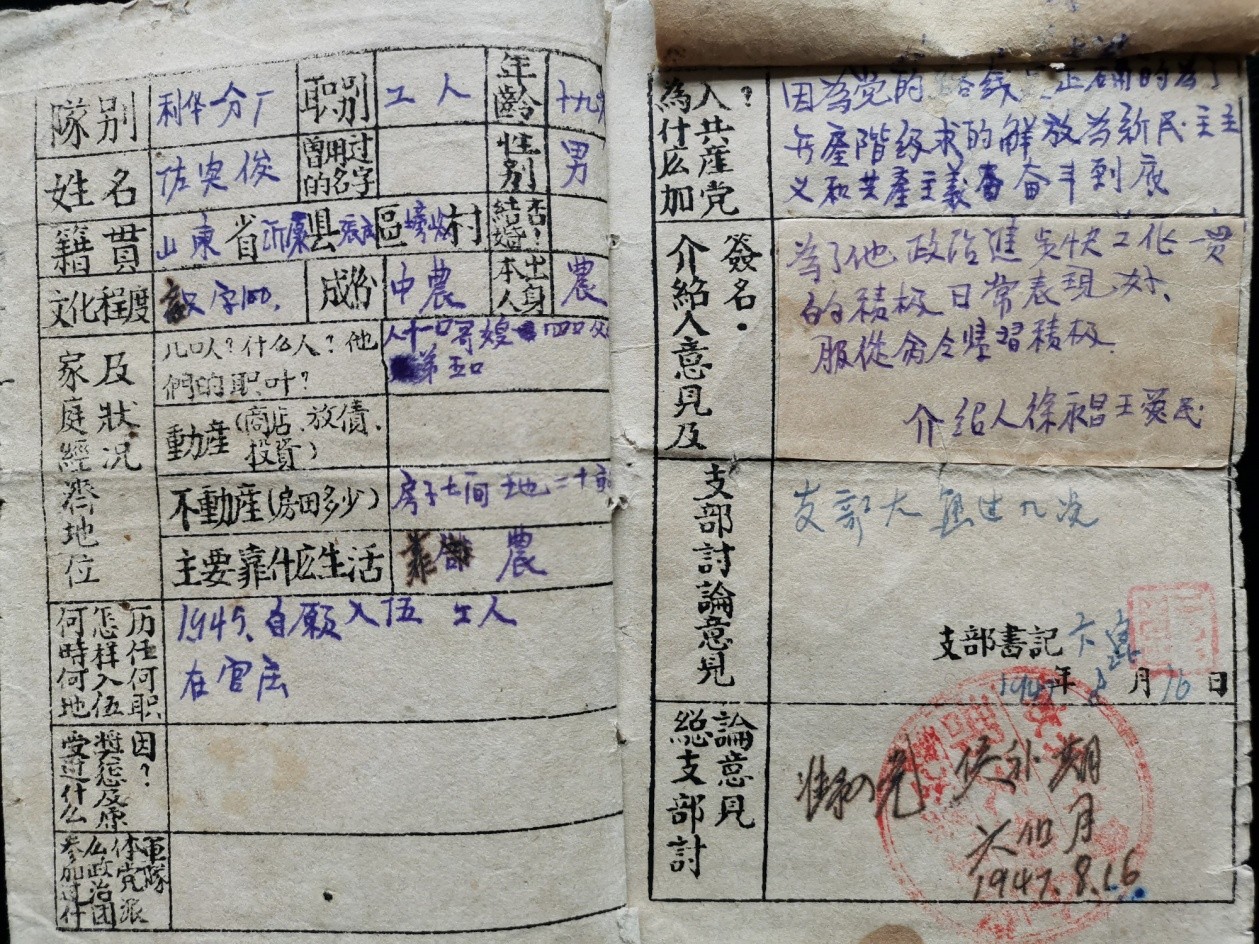 隊别 利华分厂 职别 工人 年齡 十九
姓名 佐 俊 曾用过的名字 性别 男
籍貫 山東省沂 县 區 村 結婚否?
文化程度 字100. 成份 中農 本人出身 農
家庭經濟地位及狀况
几口人?什么人?他們的职叶? 人十一口哥嫂 四口父
弟 五口
動產(商店、放債、投資)
不動產(房田多少) 房子七间 地二十亩
主要靠什庅生活 靠 農
何時何地怎样入伍历任何职
1945.自願入伍 工人
在官庄
受过什么奨惩及原因?
参加过什么政治团体党派軍隊
為什庅加入共産党?
因為党的路线 正确的为了
无產階級求的解放为新民主主
义和共產主義 奋斗到底
介紹人意見及簽名.
為了他政治進 快工作一贯
的積极日常表現好、
服從命令 習積极.
介绍人徐永昌王英民
支部討論意見
支部大 过九次
支部書記
194 年8月16日
総支部討論意見
候补期
六個月
1947.8.16